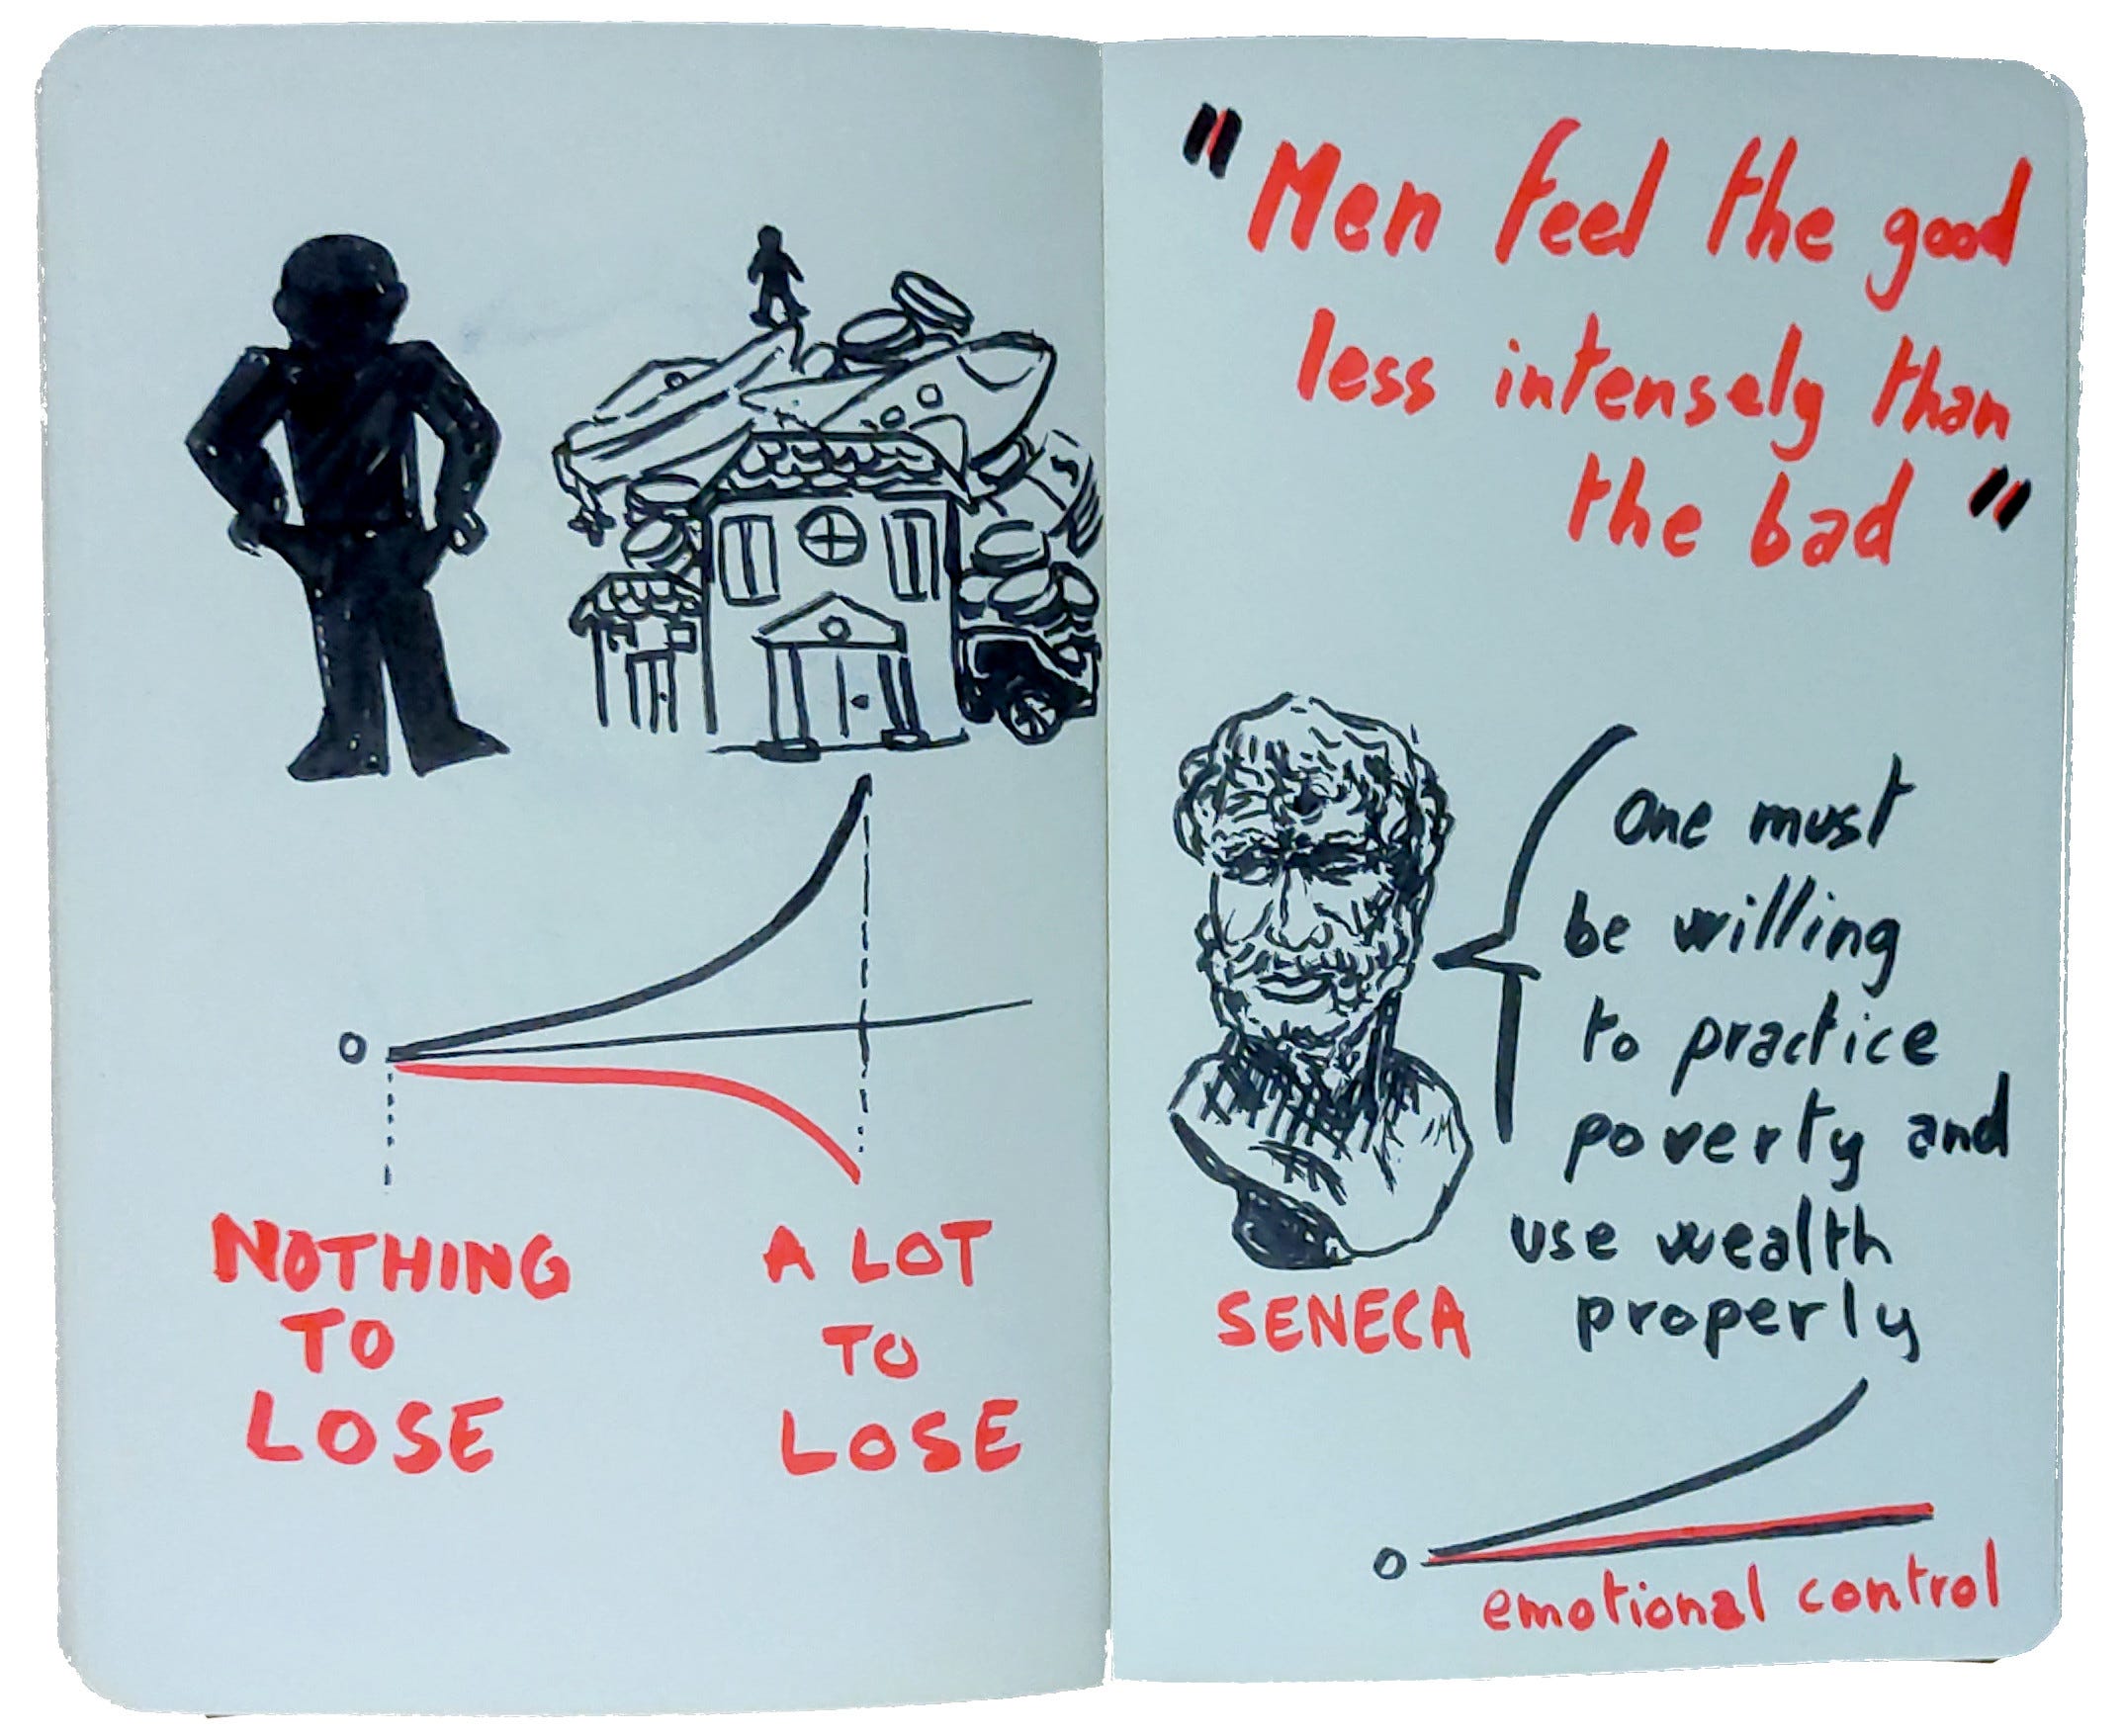 0
NOTHING
TO
LOSE
A LOT
TO
LOSE
"Men feel the good
less intensely than
the bad"
One must
be willing
to practice
poverty and
use wealth
properly
SENECA
0
emotional control